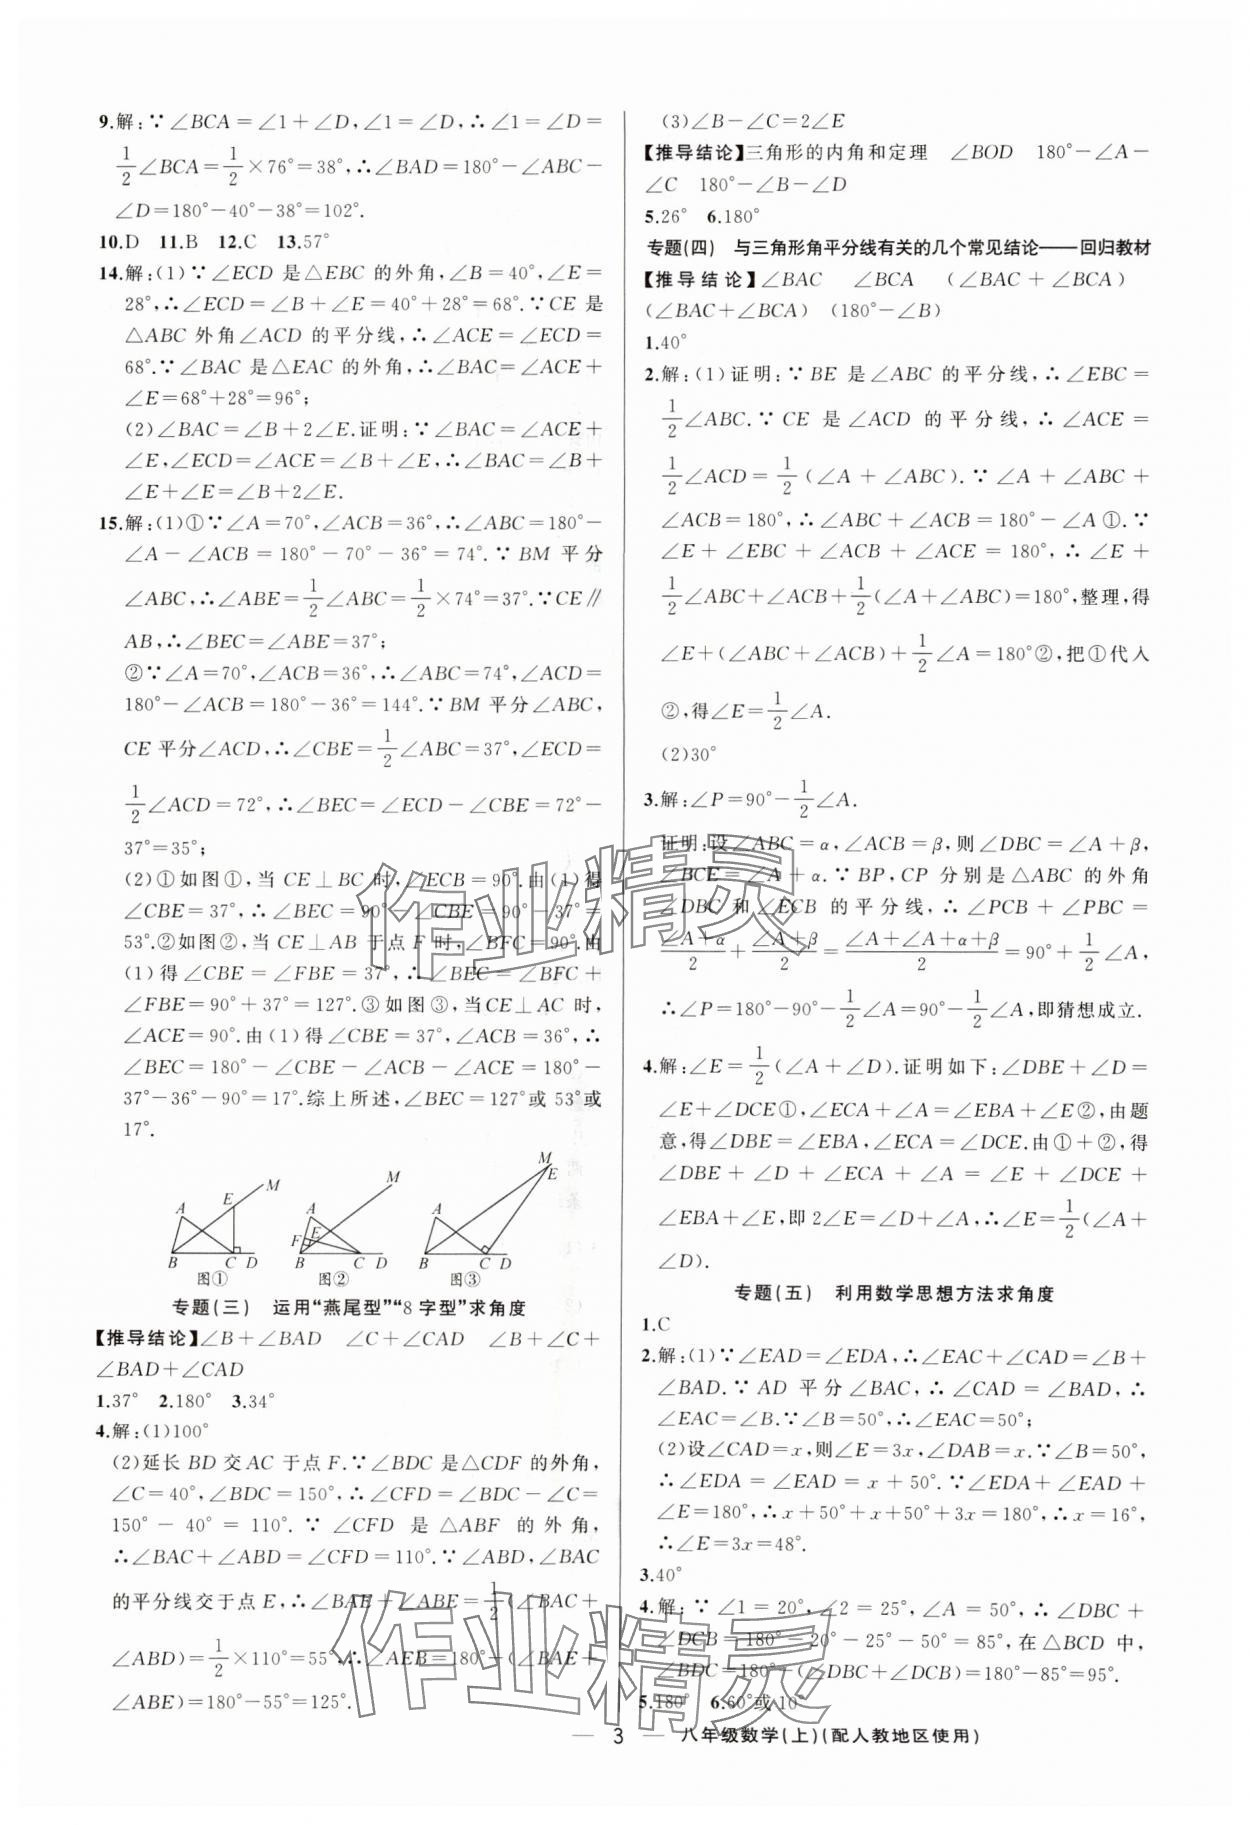 9.解:∵∠BCA=∠1+∠D,∠1=∠D,∴∠1=∠D=
1/2∠BCA=1/2×76°=38°,∴∠BAD=180°-∠ABC-
∠D=180°-40°-38°=102°.
10.D 11.B 12.C 13.57°
14.解:(1)∵∠ECD是△EBC的外角,∠B=40°,∠E=
28°,∴∠ECD=∠B+∠E=40°+28°=68°.∵CE是
△ABC外角∠ACD的平分线,∴∠ACE=∠ECD=
68°.∵∠BAC是△EAC的外角,∴∠BAC=∠ACE+
∠E=68°+28°=96°;
(2)∠BAC=∠B+2∠E.证明:∵∠BAC=∠ACE+
∠E,∠ECD=∠ACE=∠B+∠E,∴∠BAC=∠B+
∠E+∠E=∠B+2∠E.
15.解:(1)①∵∠A=70°,∠ACB=36°,∴∠ABC=180°-
∠A-∠ACB=180°-70°-36°=74°.∵BM平分
∠ABC,∴∠ABE=1/2∠ABC=1/2×74°=37°.∵CE∥
AB,∴∠BEC=∠ABE=37°;
②∵∠A=70°,∠ACB=36°,∴∠ABC=74°,∠ACD=
180°-∠ACB=180°-36°=144°.∵BM平分∠ABC,
CE平分∠ACD,∴∠CBE=1/2∠ABC=37°,∠ECD=
1/2∠ACD=72°,∴∠BEC=∠ECD-∠CBE=72°-
37°=35°;
(2)①如图①,当CE⊥BC时,∠ECB=90°.由(1)得
∠CBE=37°,∴∠BEC=90°-∠CBE=90°-37°=
53°.②如图②,当CE⊥AB于点F时,∠BFC=90°.由
(1)得∠CBE=∠FBE=37°,∴∠BEC=∠BFC+
∠FBE=90°+37°=127°.③如图③,当CE⊥AC时,
∠ACE=90°.由(1)得∠CBE=37°,∠ACB=36°,∴
∠BEC=180°-∠CBE-∠ACB-∠ACE=180°-
37°-36°-90°=17°.综上所述,∠BEC=127°或53°或
17°.
M E A B C D
图①
M A F E B C D
图②
M E A B C D
图③
专题(三) 运用“燕尾型”“8字型”求角度
【推导结论】∠B+∠BAD ∠C+∠CAD ∠B+∠C+
∠BAD+∠CAD
1.37° 2.180° 3.34°
4.解:(1)100°
(2)延长BD交AC于点F.∵∠BDC是△CDF的外角,
∠C=40°,∠BDC=150°,∴∠CFD=∠BDC-∠C=
150°-40°=110°.∵∠CFD是△ABF的外角,
∴∠BAC+∠ABD=∠CFD=110°.∵∠ABD,∠BAC
的平分线交于点E,∴∠BAE+∠ABE=1/2(∠BAC+
∠ABD)=1/2×110°=55°,∴∠AEB=180°-(∠BAE+
∠ABE)=180°-55°=125°.
(3)∠B-∠C=2∠E
【推导结论】三角形的内角和定理 ∠BOD 180°-∠A-
∠C 180°-∠B-∠D
5.26° 6.180°
专题(四) 与三角形角平分线有关的几个常见结论——回归教材
【推导结论】∠BAC ∠BCA (∠BAC+∠BCA)
(∠BAC+∠BCA) (180°-∠B)
1.40°
2.解:(1)证明:∵BE是∠ABC的平分线,∴∠EBC=
1/2∠ABC.∵CE是∠ACD的平分线,∴∠ACE=
1/2∠ACD=1/2(∠A+∠ABC).∵∠A+∠ABC+
∠ACB=180°,∴∠ABC+∠ACB=180°-∠A①.∵
∠E+∠EBC+∠ACB+∠ACE=180°,∴∠E+
1/2∠ABC+∠ACB+1/2(∠A+∠ABC)=180°,整理,得
∠E+(∠ABC+∠ACB)+1/2∠A=180°②,把①代入
②,得∠E=1/2∠A.
(2)30°
3.解:∠P=90°-1/2∠A.
证明:设∠ABC=α,∠ACB=β,则∠DBC=∠A+β,
∠BCE=∠A+α.∵BP,CP分别是△ABC的外角
∠DBC和∠ECB的平分线,∴∠PCB+∠PBC=
(∠A+α)/2+(∠A+β)/2=(∠A+∠A+α+β)/2=90°+1/2∠A,
∴∠P=180°-90°-1/2∠A=90°-1/2∠A,即猜想成立.
4.解:∠E=1/2(∠A+∠D).证明如下:∠DBE+∠D=
∠E+∠DCE①,∠ECA+∠A=∠EBA+∠E②,由题
意,得∠DBE=∠EBA,∠ECA=∠DCE.由①+②,得
∠DBE+∠D+∠ECA+∠A=∠E+∠DCE+
∠EBA+∠E,即2∠E=∠D+∠A,∴∠E=1/2(∠A+
∠D).
专题(五) 利用数学思想方法求角度
1.C
2.解:(1)∵∠EAD=∠EDA,∴∠EAC+∠CAD=∠B+
∠BAD.∵AD平分∠BAC,∴∠CAD=∠BAD,∴
∠EAC=∠B.∵∠B=50°,∴∠EAC=50°;
(2)设∠CAD=x,则∠E=3x,∠DAB=x.∵∠B=50°,
∴∠EDA=∠EAD=x+50°.∵∠EDA+∠EAD+
∠E=180°,∴x+50°+x+50°+3x=180°,∴x=16°,
∴∠E=3x=48°.
3.40°
4.解:∵∠1=20°,∠2=25°,∠A=50°,∴∠DBC+
∠DCB=180°-20°-25°-50°=85°,在△BCD中,
∠BDC=180°-(∠DBC+∠DCB)=180°-85°=95°.
5.180° 6.60°或10°
— 3 — 八年级数学(上)(配人教地区使用)
作业精灵
作业精灵